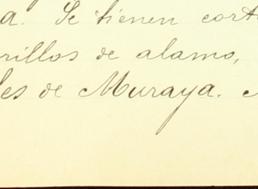 a. Se tienen cort
rillos de alamo,
les de Muraya.